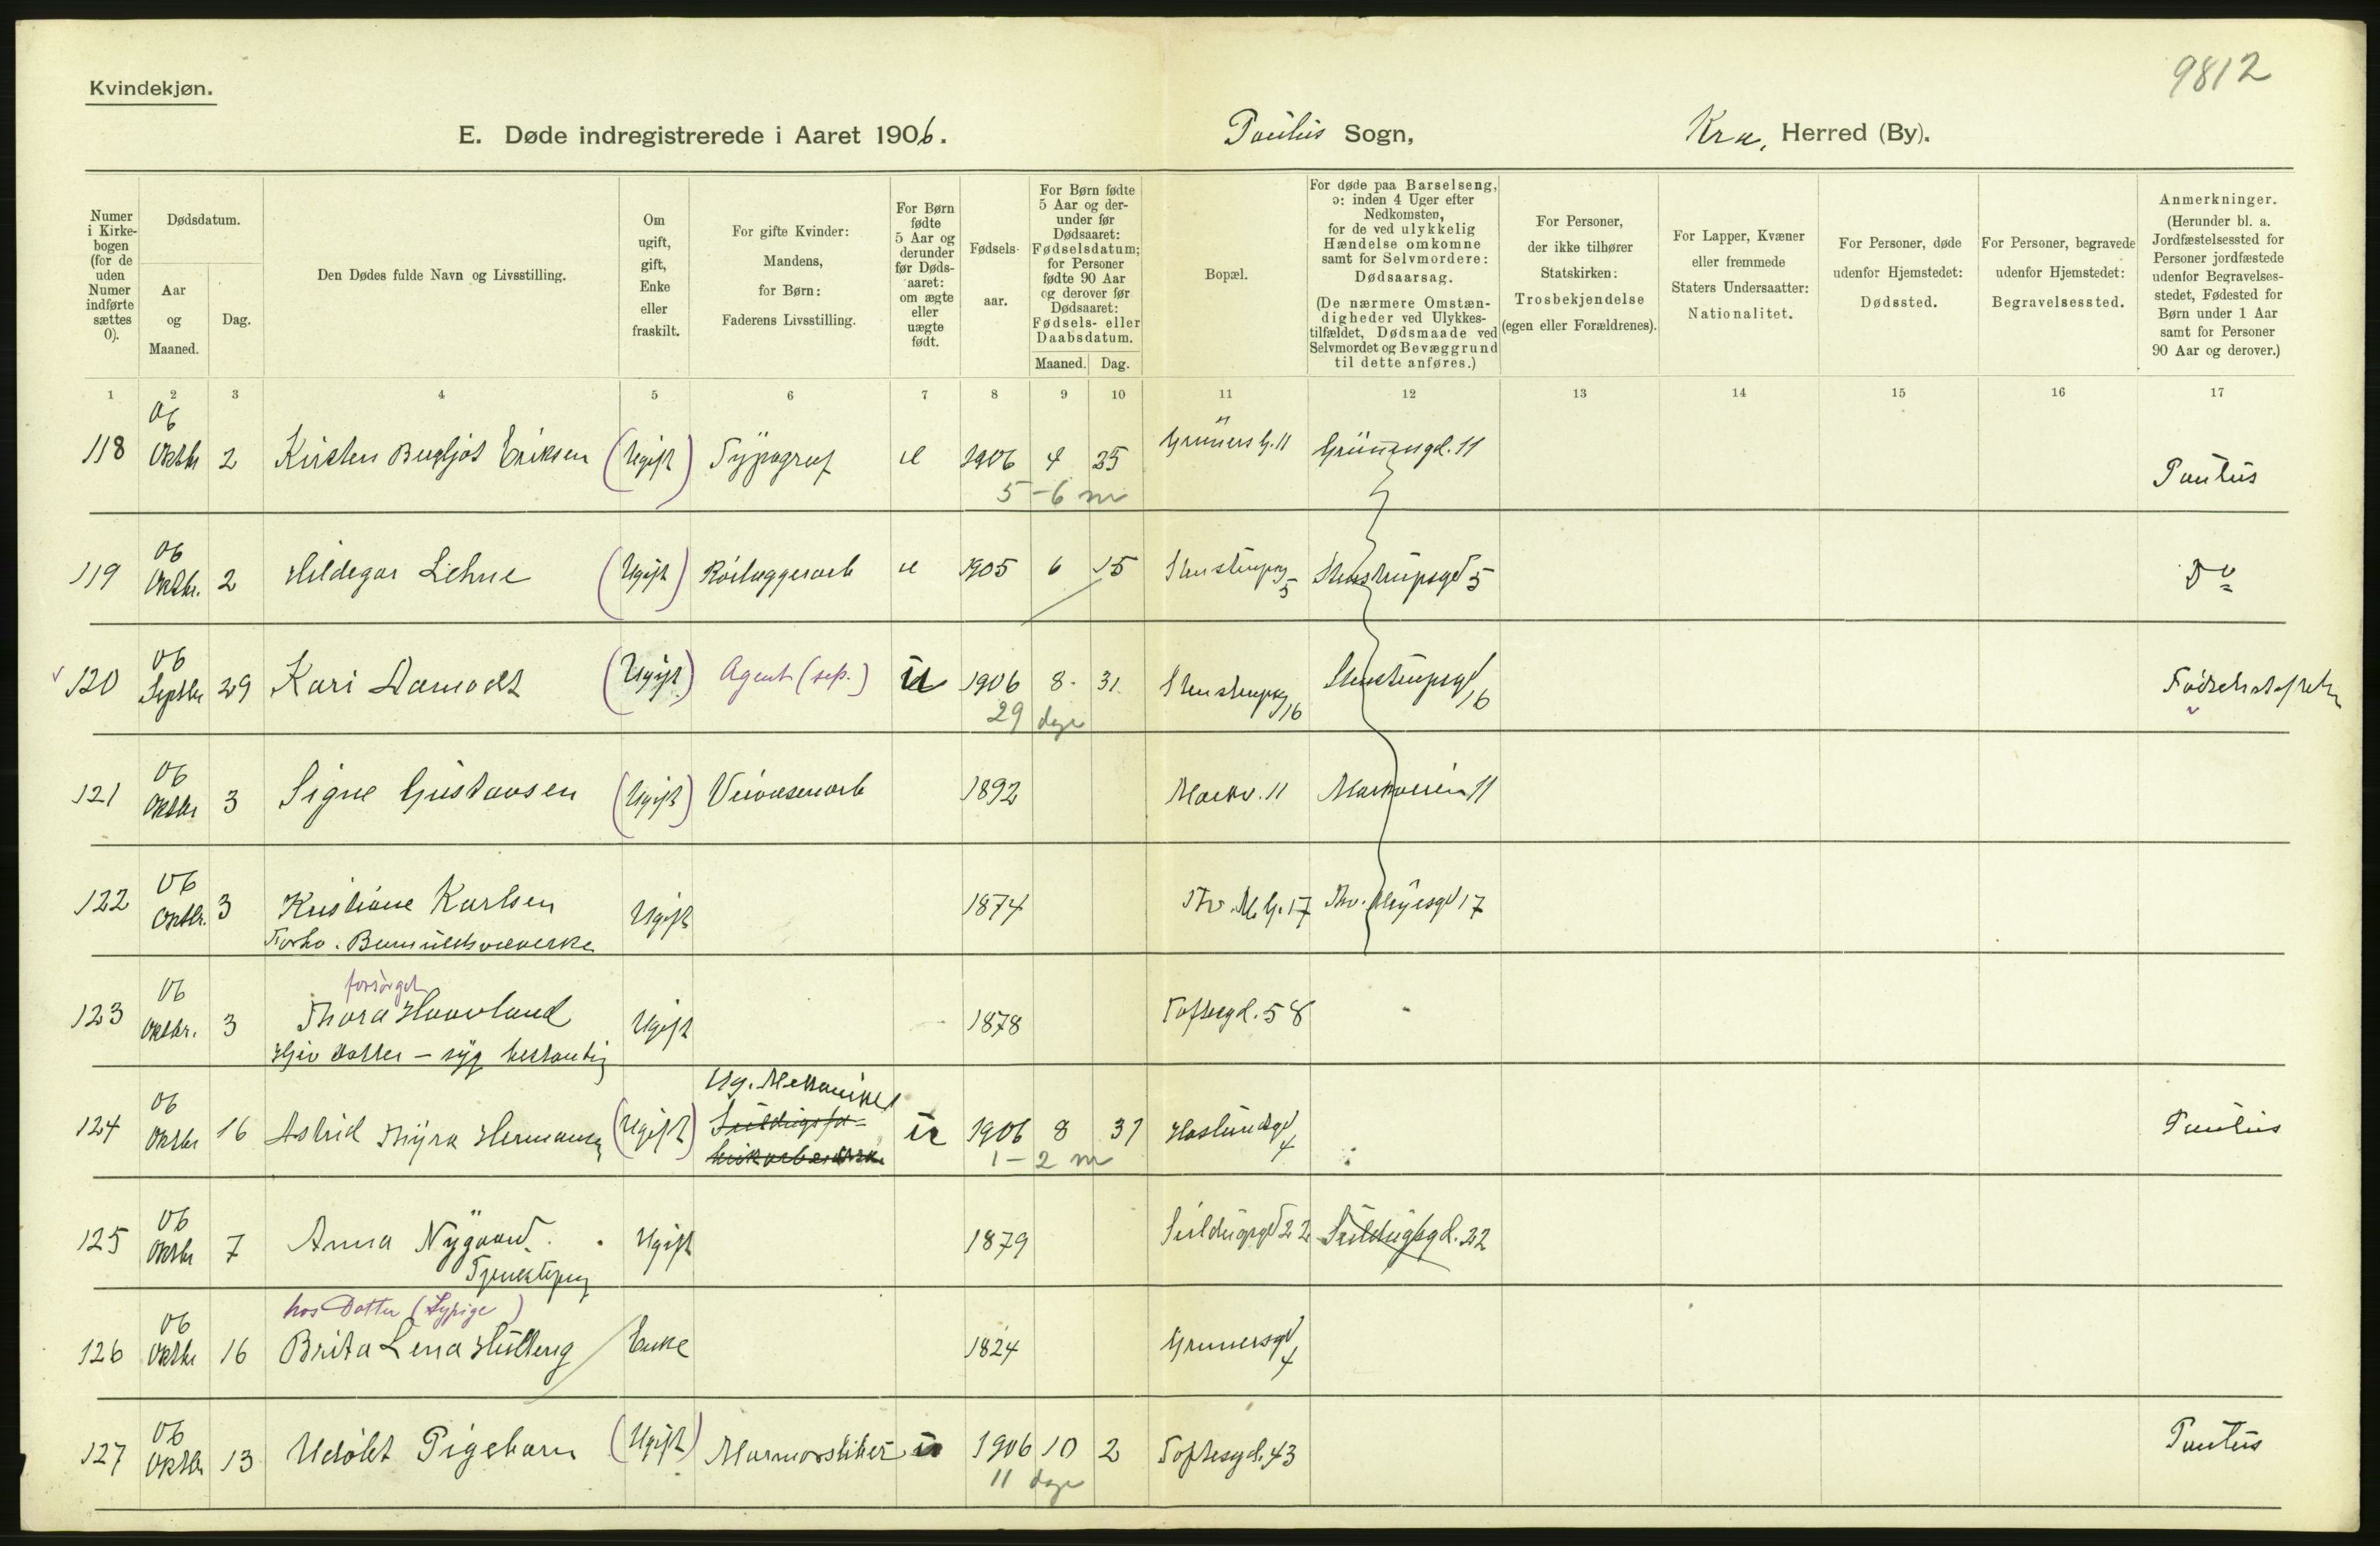 9812
Kvindekjøn.
E. Døde indregistrerede i Aaret 1906. Paulus Sogn, Kra, Herred (By).
Numer i Kirke-bogen (for de uden Numer indførte sættes 0).
Dødsdatum.
Aar og Maaned.
Dag.
Den Dødes fulde Navn og Livsstilling.
Om ugift, gift, Enke eller fraskilt.
For gifte Kvinder: Mandens, for Børn: Faderens Livsstilling.
For Børn fødte 5 Aar og derunder før Døds-aaret: om ægte eller uægte født.
Fødsels-aar.
For Børn fødte 5 Aar og der-under før Dødsaaret: Fødselsdatum; for Personer fødte 90 Aar og derover før Dødsaaret: Fødsels- eller Daabsdatum.
Maaned. Dag.
Bopæl.
For døde paa Barselseng, ɔ: inden 4 Uger efter Nedkomsten, for de ved ulykkelig Hændelse omkomne samt for Selvmordere: Dødsaarsag.
(De nærmere Omstæn-digheder ved Ulykkes-tilfældet, Dødsmaade ved Selvmordet og Bevæggrund til dette anføres.)
For Personer, der ikke tilhører Statskirken: Trosbekjendelse (egen eller Forældrenes).
For Lapper, Kvæner eller fremmede Staters Undersaatter: Nationalitet.
For Personer, døde udenfor Hjemstedet: Dødssted.
For Personer, begravede udenfor Hjemstedet: Begravelsessted.
Anmerkninger.
(Herunder bl. a. Jordfæstelsessted for Personer jordfæstede udenfor Begravelses-stedet, Fødested for Børn under 1 Aar samt for Personer 90 Aar og derover.)
1 2 3 4 5 6 7 8 9 10 11 12 13 14 15 16 17
06
118 Oktbr 2 Kirsten Bergljot Eriksen (Ugift) Typograf 1906 4 25 Grüners G. 11 Grünersgd. 11 Paulus
5-6 m
06
119 Oktbr. 2 Hildegar Lehne (Ugift) Rörlæggerarb 1905 6 15 Stenstrupsg 5 Stenstrupsgd 5 Do
06
120 Septbr 29 Kari Aamodt (Ugift) Agent (sep.) u 1906 8. 31. Stenstrupsg 16 Stenstrupsgd 16
29 dage
06
121 Oktbr 3 Signe Gustavsen (Ugift) Veivæsenarb 1892 Markv. 11 Markveien 11
06
122 Oktbr. 3 Kristiane Karlsen Ugift 1874 Thv. M. G. 17 Thv. Meyersgd 17
Forhv. Bomuldsvæverske
06 forsörget
123 Oktbr. 3 Thora Haavland Ugift 1878 Toftesgd. 58
06 Ug. Mekaniker
124 Oktbr 16 Astrid Thyra Hermansen (Ugift) 1906 8 31 Haslundsgd 4 Paulus
1-2 m
06
125 Oktbr 7 Anna Nygaard. Ugift 1879 Seildugsgd 22 Seildugsgd. 22
Tjenestepige
hos Datter (Sypige)
06
126 Oktbr 16 Brita Lena Hulteng Enke 1824 Grunersgd 4
06
127 Oktbr 13 Pigebarn (Ugift) 1906 10 2 Toftesgd. 43 Paulus
11 dage